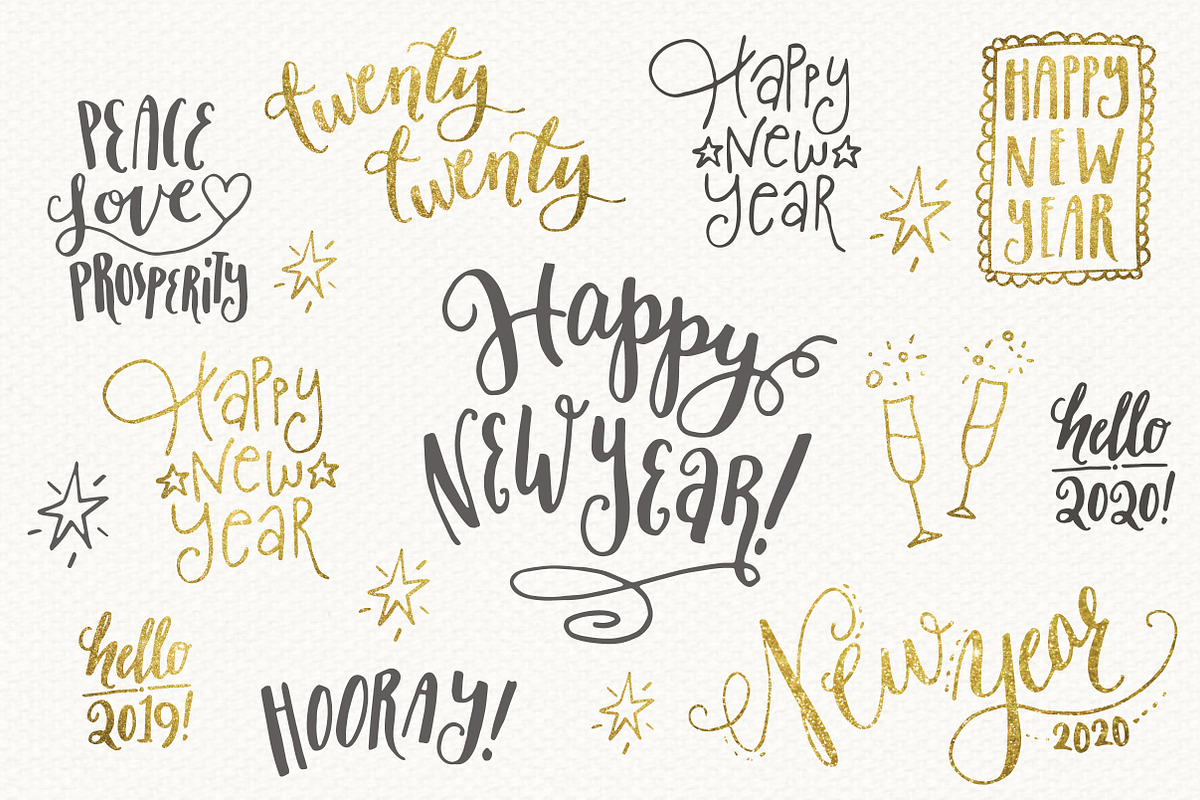 PEACE
Love
PROSPERITY
twenty
twenty
Happy
New
year
HAPPY
NEW
YEAR
Happy
New
year
Happy
NEW YEAR!
hello
2020!
hello
2019!
HOORAY!
New year
2020